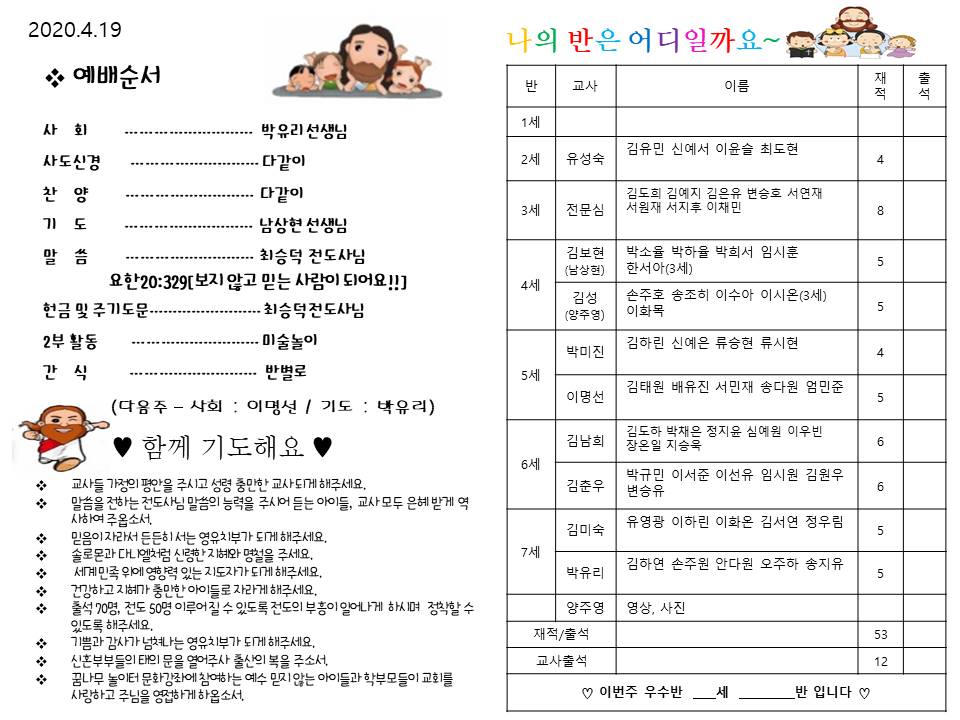 2020.4.19
❖ 예배순서
사 회 --------------------------- 박유리 선생님
사도신경 --------------------------- 다같이
찬 양 --------------------------- 다같이
기 도 --------------------------- 남상현 선생님
말 씀 --------------------------- 최승덕 전도사님
요한20:329[보지 않고 믿는 사람이 되어요!!]
헌금 및 주기도문----------------------- 최승덕전도사님
2부 활동 --------------------------- 미술놀이
간 식 --------------------------- 반별로
(다음주 – 사회 : 이명선 / 기도 : 박유리)
♥ 함께 기도해요 ♥
❖ 교사들 가정의 평안을 주시고 성령 충만한 교사 되게 해주세요.
❖ 말씀을 전하는 전도사님 말씀의 능력을 주시어 듣는 아이들, 교사 모두 은혜 받게 역
사하여 주옵소서.
❖ 믿음이 자라서 든든히 서는 영유치부가 되게 해주세요.
❖ 솔로몬과 다니엘처럼 신령한 지혜와 명철을 주세요.
❖ 세계 민족 위에 영향력 있는 지도자가 되게 해주세요.
❖ 건강하고 지혜가 충만한 아이들로 자라게 해주세요.
❖ 출석 70명, 전도 50명 이루어 질 수 있도록 전도의 부흥이 일어나게 하시며 정착할 수
있도록 해주세요.
❖ 기쁨과 감사가 넘쳐나는 영유치부가 되게 해주세요.
❖ 신혼부부들의 태의 문을 열어주사 출산의 복을 주소서.
❖ 꿈나무 놀이터 문화강좌에 참여하는 예수 믿지 않는 아이들과 학부모들이 교회를
사랑하고 주님을 영접하게 하옵소서.
나의 반은 어디일까요~
반 교사 이름 재적 출석
1세
2세 유성숙 김유민 신예서 이윤슬 최도현 4
3세 전문심 김도희 김예지 김은유 변승호 서연재
서원재 서지후 이채민 8
4세 김보현 (남상현) 박소율 박하율 박희서 임시훈
한서아(3세) 5
김성 (양주영) 손주호 송조히 이수아 이시온(3세)
이화목 5
5세 박미진 김하린 신예은 류승현 류시현 4
이명선 김태원 배유진 서민재 송다원 엄민준 5
6세 김남희 김도하 박채은 정지윤 심예원 이우빈
장온일 지승욱 6
김춘우 박규민 이서준 이선유 임시원 김원우
변승유 6
7세 김미숙 유영광 이하린 이화온 김서연 정우림 5
박유리 김하연 손주원 안다원 오주하 송지유 5
양주영 영상, 사진
재적/출석 53
교사출석 12
♡ 이번주 우수반 ___세 ________반 입니다 ♡